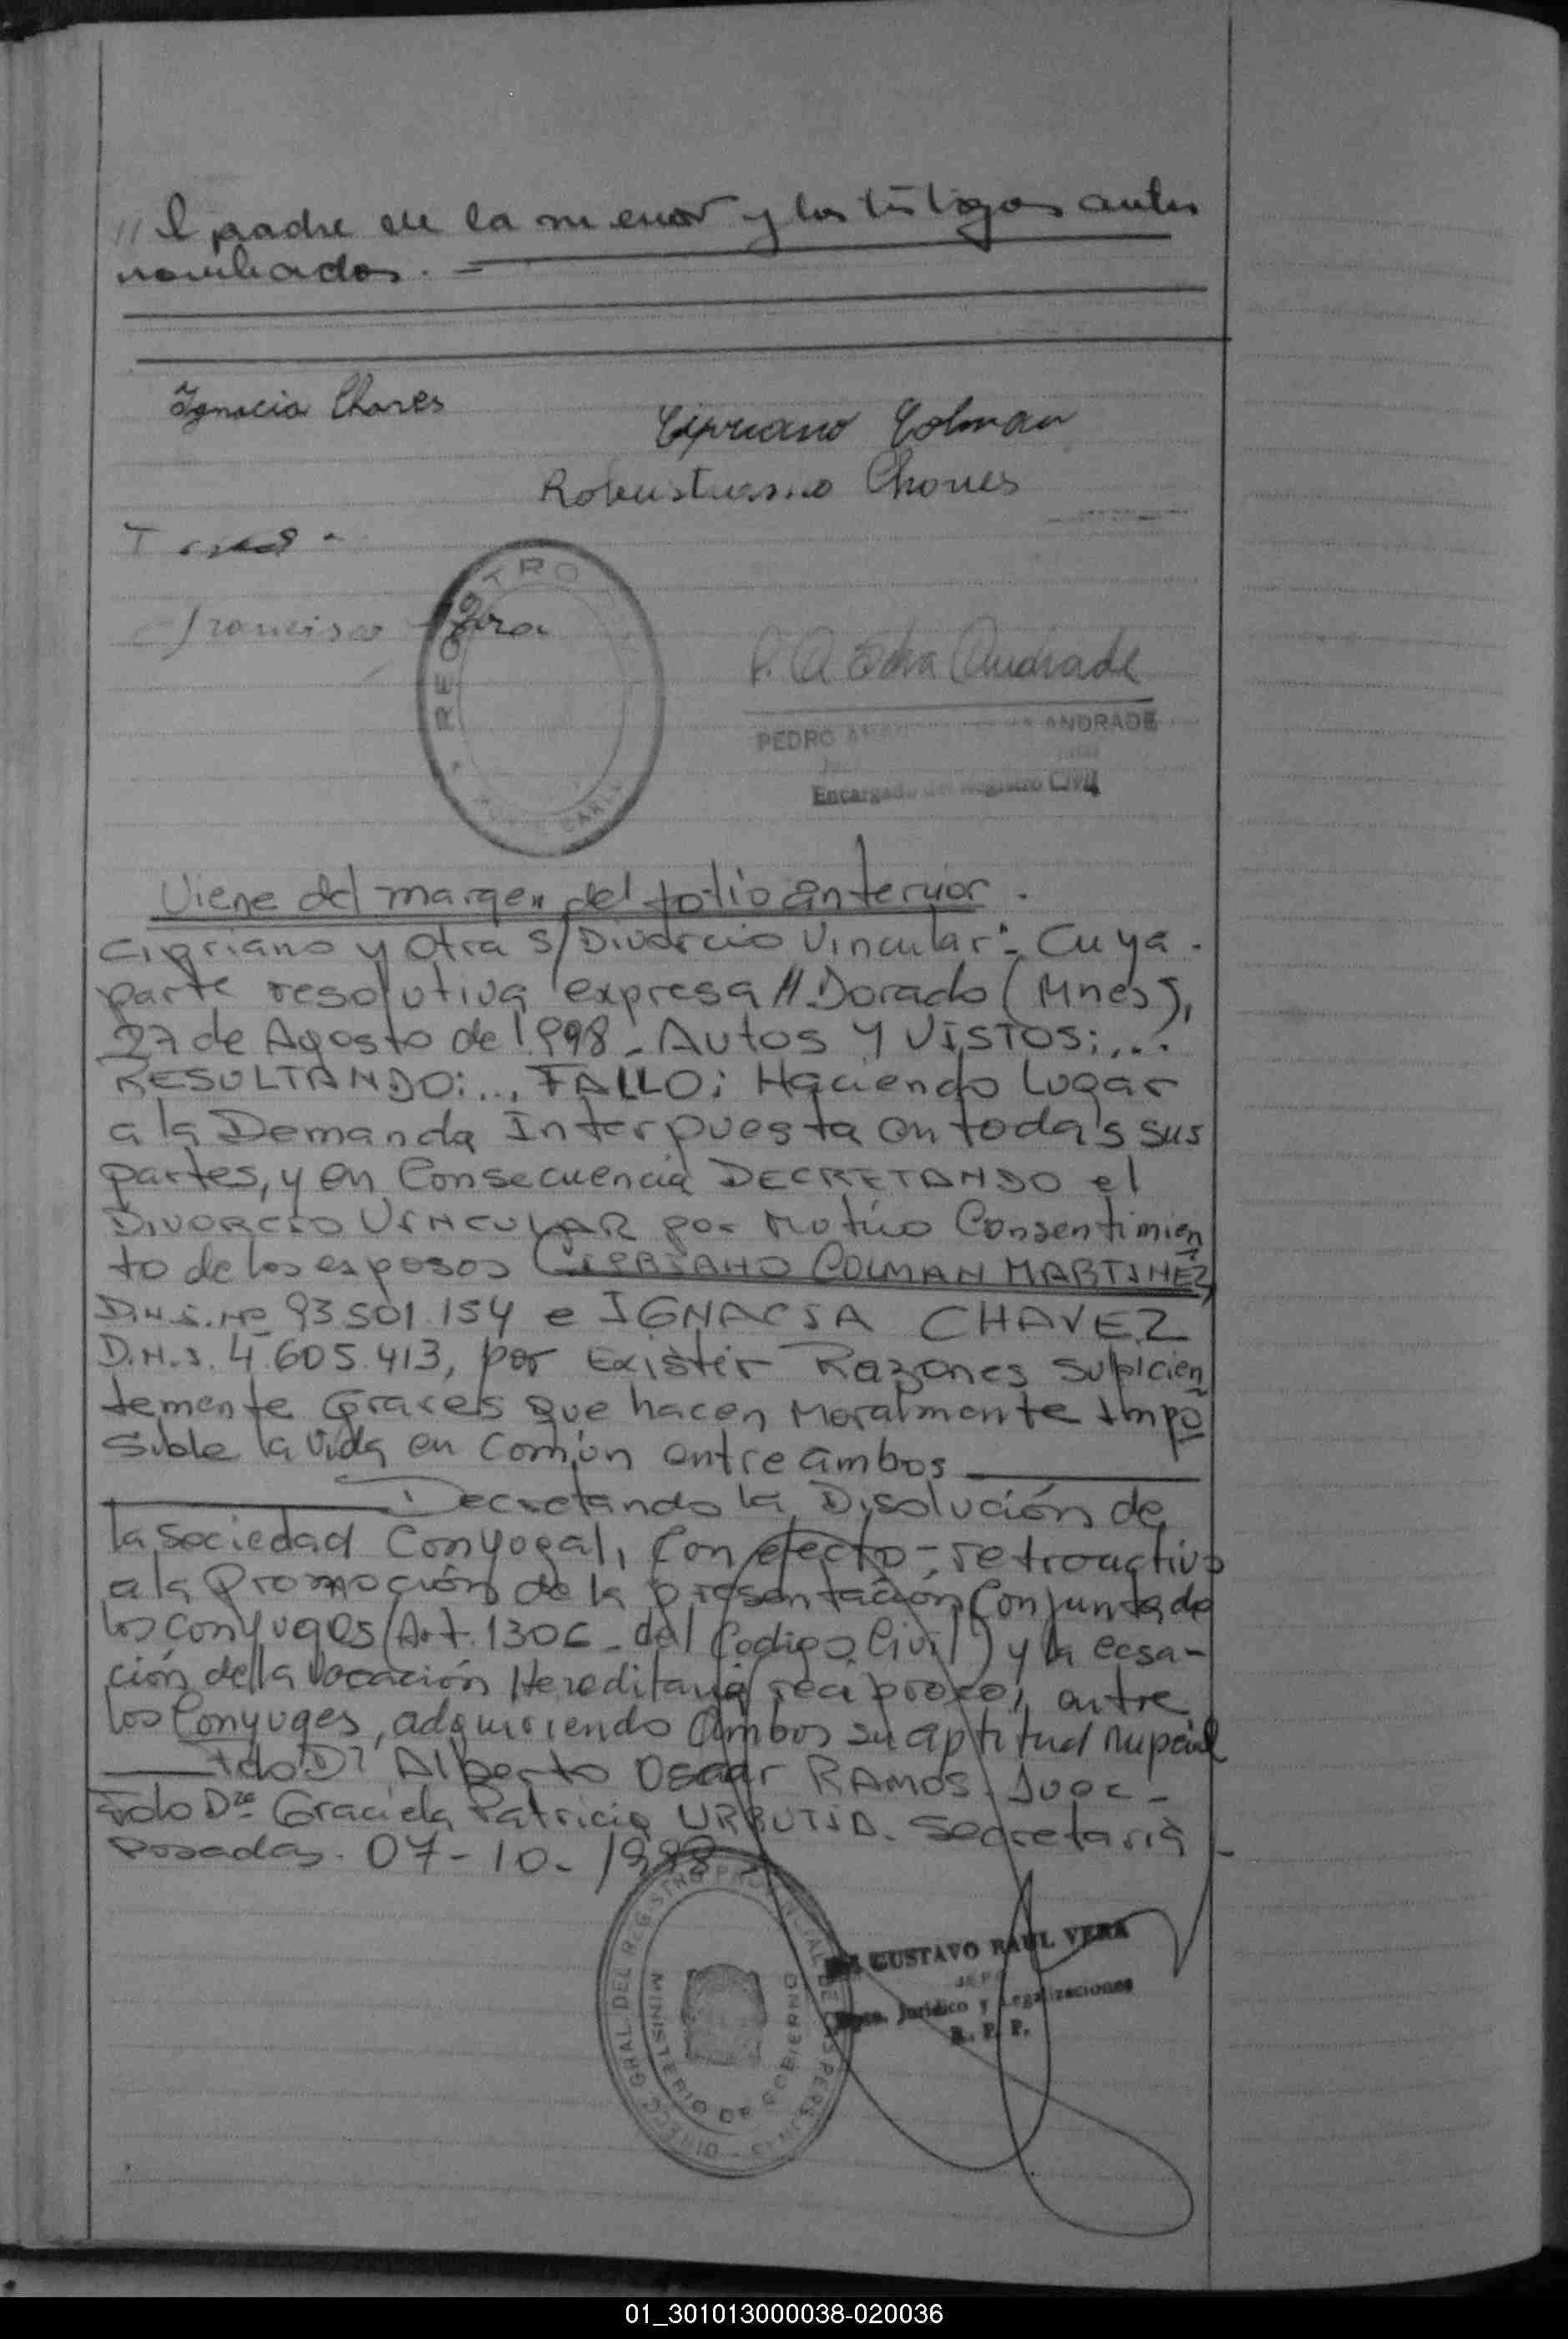 // l padre de la menor y los testigos antes
nombrados. —
Ignacia Chaves
Cipriano Colman
Robustiano Chaves
Francisco
REGISTRO
P. A. Silva Andrade
PEDRO ANDRADE
Encargado del Registro Civil
Viene del margen del folio anterior.
Cipriano y Otra S/Divorcio Vincular". Cuya
parte resolutiva expresa // Dorado (Mnes),
27 de Agosto de 1998 - Autos Y VISTOS:...
RESULTANDO:... FALLO: Haciendo Lugar
a la Demanda Interpuesta en todas sus
partes, y en Consecuencia DECRETANDO el
DIVORCIO VINCULAR por Mutuo Consentimien
to de los esposos CIPRIANO COLMAN MARTINEZ,
D.N.I. Nº 93.501.154 e IGNACIA CHAVEZ
D.N.I. 4.605.413, por Existir Razones Suficien
temente Graves que hacen Moralmente Impo
sible la Vida en Común entre ambos
Decretando la Disolución de
la Sociedad Conyugal, Con efecto - retroactivo
a la Promoción de la presentación Conjunta de
los Conyuges (Art. 1306 - del Codigo Civil) y la cesa-
ción de la Vocación Hereditaria reciproca, entre
los Conyuges, adquiriendo ambos su aptitud nupcial
Fdo Dr Alberto Oscar RAMOS. Juez -
Fdo Dra Graciela Patricia URRUTIA. Secretaria -
Posadas. 07-10-1998
DIRECC. GRAL. DEL REGISTRO PROVINCIAL DE LAS PERSONAS
MINISTERIO DE GOBIERNO
GUSTAVO RAUL VERA
JEFE
Dpto. Jurídico y Legalizaciones
R. P. P.
01_301013000038-020036